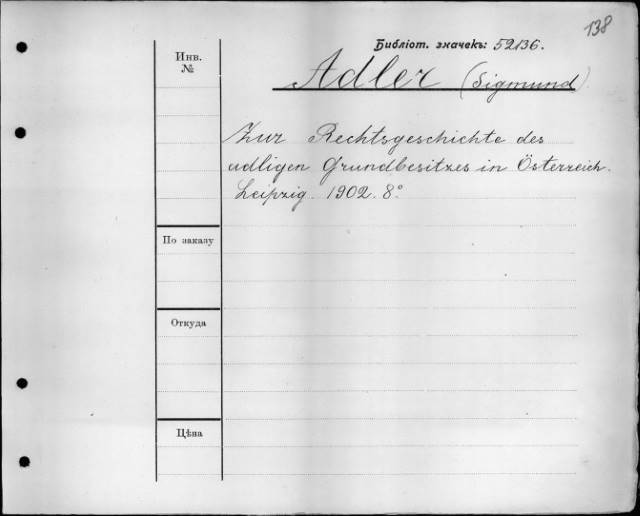 138
Библіот. значекъ: 52136.
Инв.
№
Adler (Sigmund)
Zur Rechtsgeschichte des
adligen Grundbesitzes in Österreich.
Leipzig. 1902. 8°
По заказу
Откуда
Цѣна